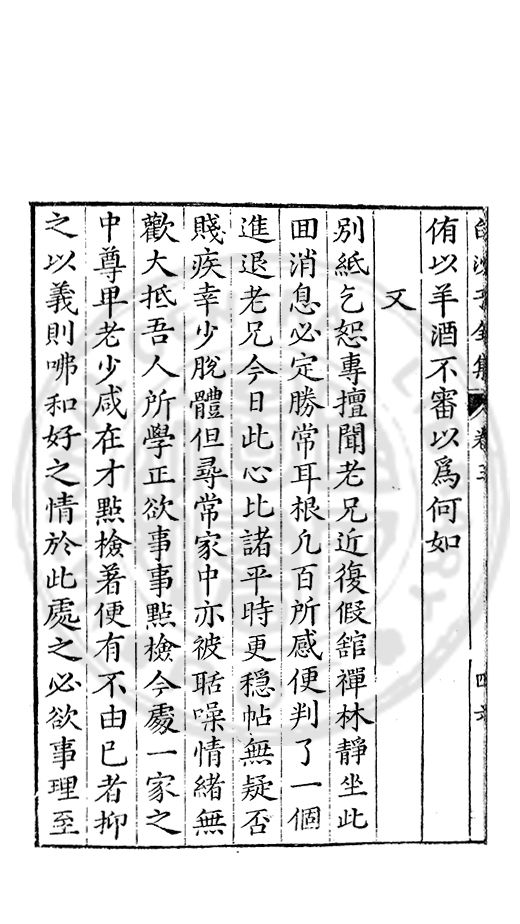 白沙子全集 卷三 四六
侑以羊酒不審以爲何如
又
別紙乞恕專擅聞老兄近復假舘禪林靜坐此
囬消息必定勝常耳根凢百所感便判了一個
進退老兄今日此心比諸平時更穩帖無疑否
賤疾幸少脫體但尋常家中亦被聒噪情緒無
歡大抵吾人所學正欲事事點檢今處一家之
中尊甲老少咸在才點檢著便有不由已者抑
之以義則咈和好之情於此處之必欲事理至